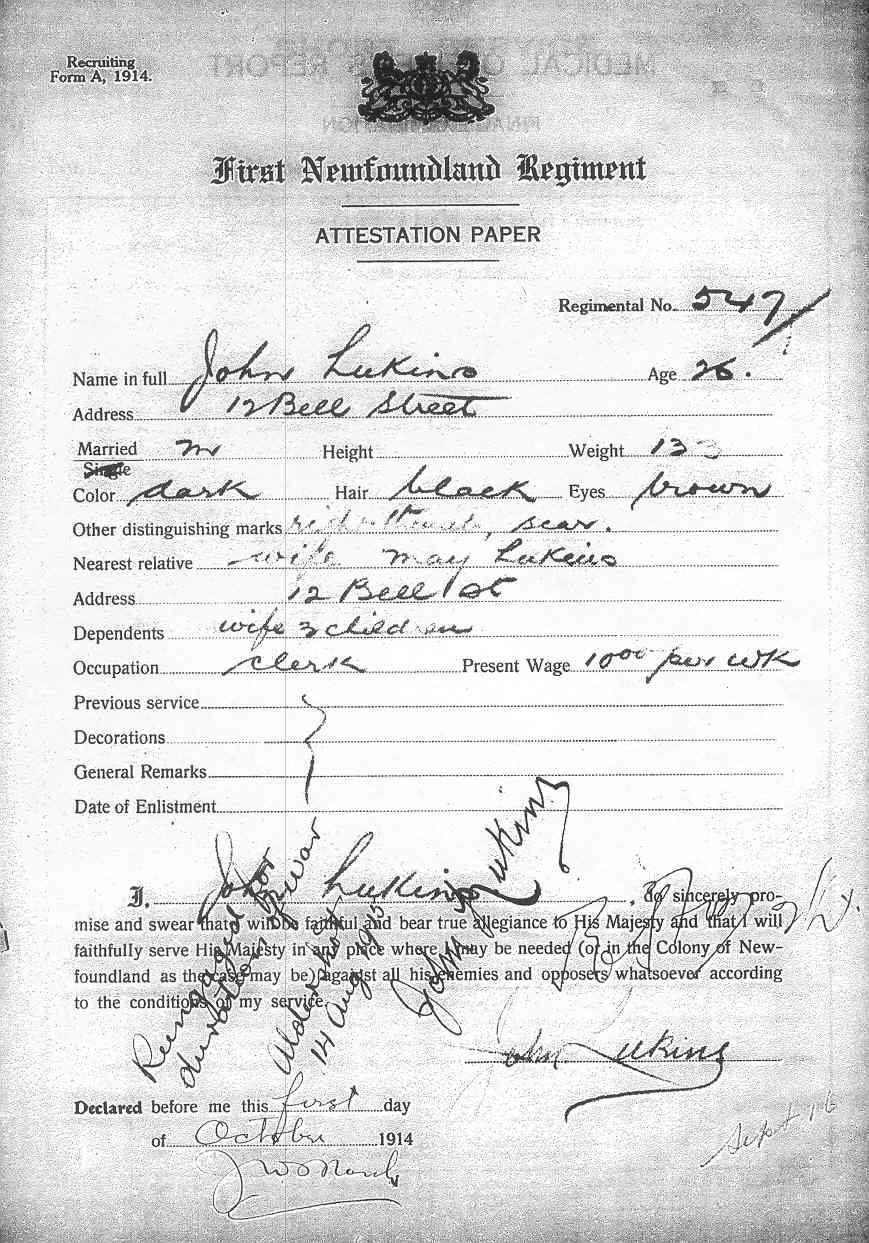 Recruiting
Form A, 1914.
First Newfoundland Regiment
ATTESTATION PAPER
Regimental No. 547
Name in full John Lukins Age 26.
Address 12 Bell Street
Married m Height Weight 133
Single
Color dark Hair black Eyes brown
Other distinguishing marks right thumb, scar.
Nearest relative wife May Lukins
Address 12 Bell St
Dependents wife 3 children
Occupation clerk Present Wage 10 00 per wk
Previous service
Decorations
General Remarks
Date of Enlistment
I, John Lukins, do sincerely pro-
mise and swear that I will be faithful and bear true allegiance to His Majesty and that I will
faithfully serve His Majesty in any place where I may be needed (or in the Colony of New-
foundland as the case may be) against all his enemies and opposers whatsoever according
to the conditions of my service.
Reengaged for
duration of war
Aldershot
14 Aug 1915
John Lukins
John Lukins
Declared before me this first day
of October 1914
Sept 16